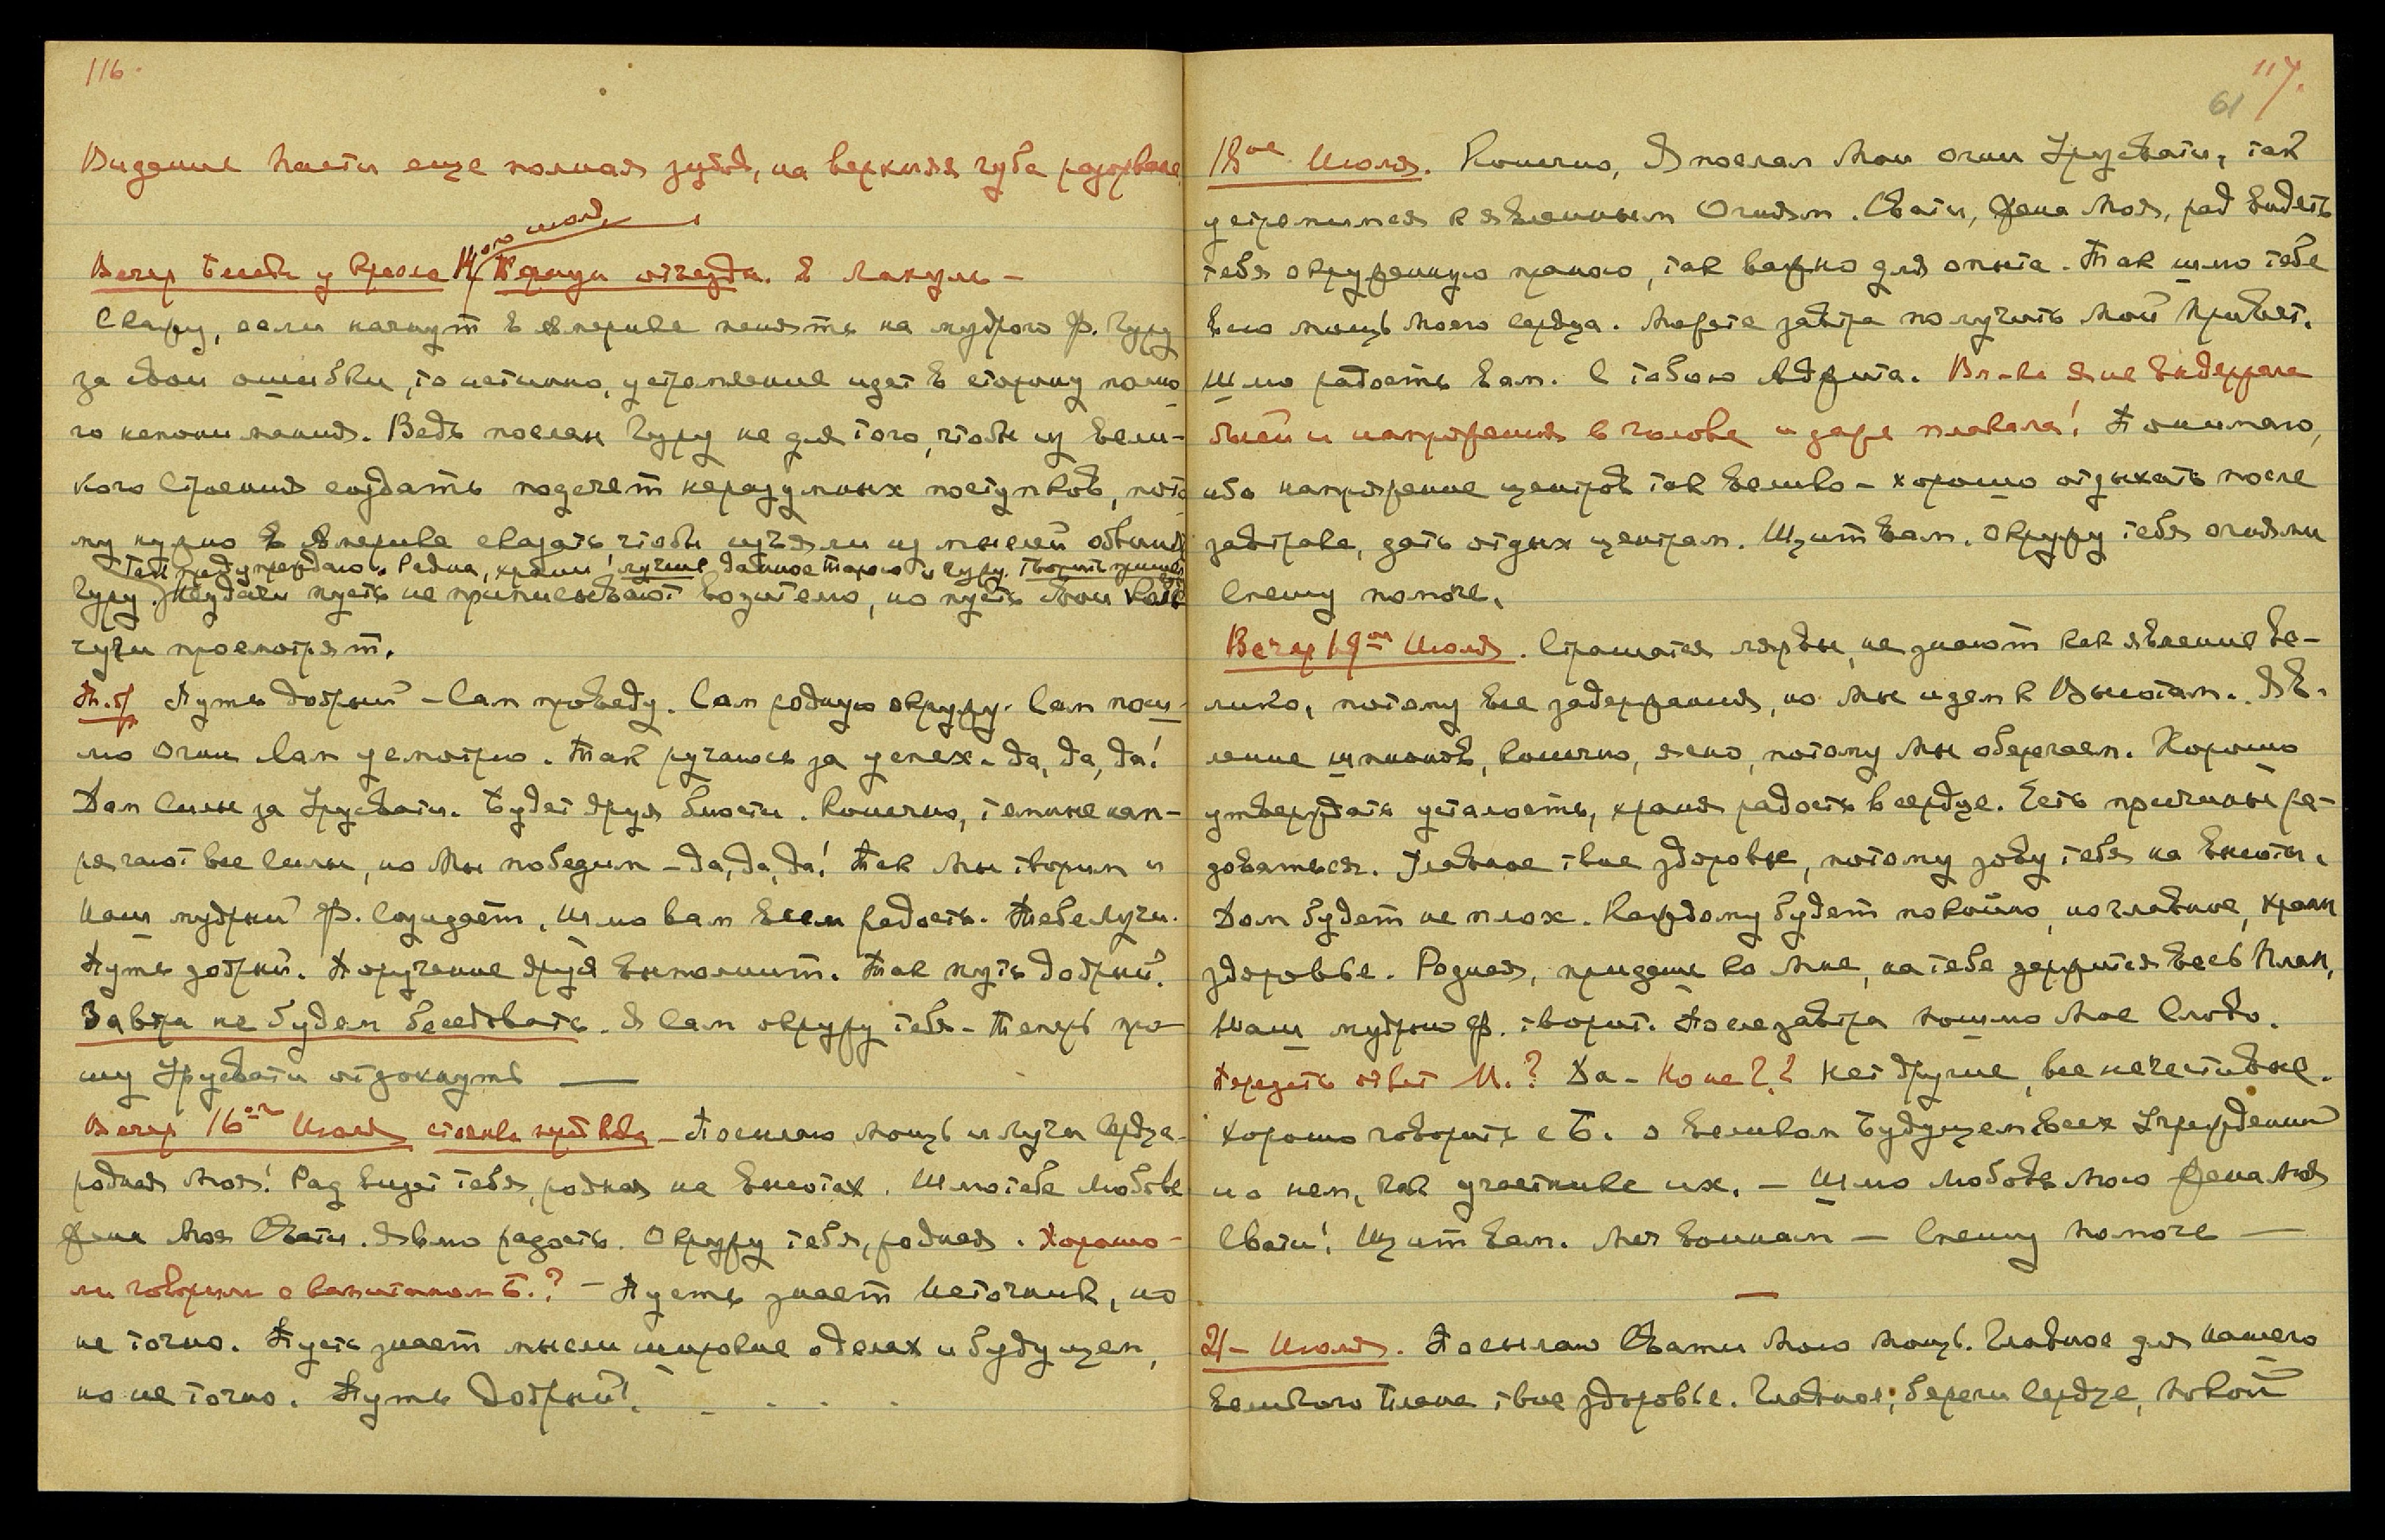 116.
Видение пасти еще полная зубов, на верхняя губа разорвана
14го июля
Вечер Беседы у Кресла Канун отъезда в Лахуль –
Скажу, если начнут в Америке пенять на мудрого Ф. Гуру
за свои ошибки, то истинно, устремление идет в сторону полно
го непонимания. Ведь послан Гуру не для того, чтобы из вели-
кого Строения создать подсчет неразумных поступков, пото
му нужно в Америке сказать, чтобы изъяли из мыслей обвиня
Тебя предупреждаю. Родная, храни! лучшее данное Тарою и Гуру.
Гуру. Неудачи пусть не приписывают водителю, но пусть свои
чуги просмотрят.
Путь добрый – Сам проведу. Сам родную окружу. Сам пош-
лю Огни Сам усмотрю. Так ручаюсь за успех – да, да, да!
Дам Силы за Урусвати. Будет друг блюсти. Конечно, темные нап-
рягают все силы, но Мы победим – да, да, да! Так Мы творим и
Наш мудрый Ф. созидает. Шлю вам всем радость. Тебе Лучи.
Путь добрый. Поручение друг выполнит. Так путь добрый.
Завтра не будем беседовать. Я Сам окружу тебя – Теперь про-
шу Урусвати отдохнуть —
Вечер 16ое Июля – Посылаю мощь и лучи Сердца
родная Моя! Рад видеть тебя, родная на высотах. Шлю тебе любовь
Жена Моя Свати. Явлю радость. Окружу тебя, родная. Хорошо-
ли говорили с капитаном Б.? – Пусть знает Источник, но
не точно. Пусть знает мысли широкие о делах и будущем,
но не точно. Путь добрый!
117.
61
18ое Июля. Конечно, Я послал Мои огни Урусвати, так
устремимся к явленным Огням. Свати, Жена Моя, рад видеть
тебя окруженную праною, так важно для опыта. Так шлю тебе
всю мощь Моего Сердца. Можете завтра получить Мой Привет.
Шлю радость вам. С тобою Адити. Вл-ка я не выдержала
и напряжения в голове и даже плакала! Понимаю,
ибо напряжение центров так велико – хорошо отдыхать после
завтрака, дать отдых центрам. Щит вам. Окружу тебя огнями
Спешу помочь.
Вечер 19ое Июля. Страшатся лярвы, не знают как явление ве-
лико, потому все задержания, но Мы идем к Высотам. Яв-
ление шпионов, конечно, ясно, потому Мы оберегаем. Хорошо
утверждать усталость, храня радость в сердце. Есть причины ра-
доваться. Главное твое здоровье, потому зову тебя на высоты.
Дом будет не плох. Каждому будет покойно, но главное, храни
здоровье. Родная, придешь ко Мне, на тебе держится весь План,
Наш мудрый Ф. творит. Послезавтра пошлю Мое Слово.
Передать ответ М.? Да – Но не ?.? Нет другие, все нечестивые.
Хорошо говорить с Б. о великом будущем всех Учреждений
и о нем, как участнике их. – Шлю любовь Мою Жена Моя
Свати! Щит вам. Меч воинам – Спешу помочь —
21 – Июля. Посылаю Свати Мою мощь. Главное для нашего
великого Плана твое здоровье. Главное, береги сердце, покой